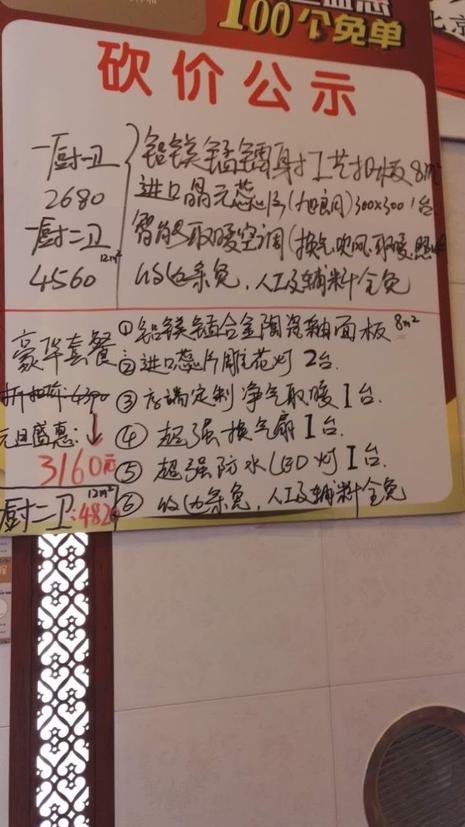 100个免单
北京
砍价公示
一厨一卫
2680
一厨二卫
12m²
4560
铝镁锰镭射工艺扣板 8m²
进口晶元芯片(加良风)300x300 1台
智能取暖空调(换气.吹风.取暖.照
收边条免,人工及辅料全免
豪华套餐
打扣价:4390
元旦盛惠:
3160元
厨二卫:482
12m²
①铝镁锰合金陶瓷釉面板 8m²
②进口芯片雕花灯 2台.
③高端定制净气取暖1台
④超强换气扇1台.
⑤超强防水LED灯1台.
⑥收边条免,人工及辅料全免